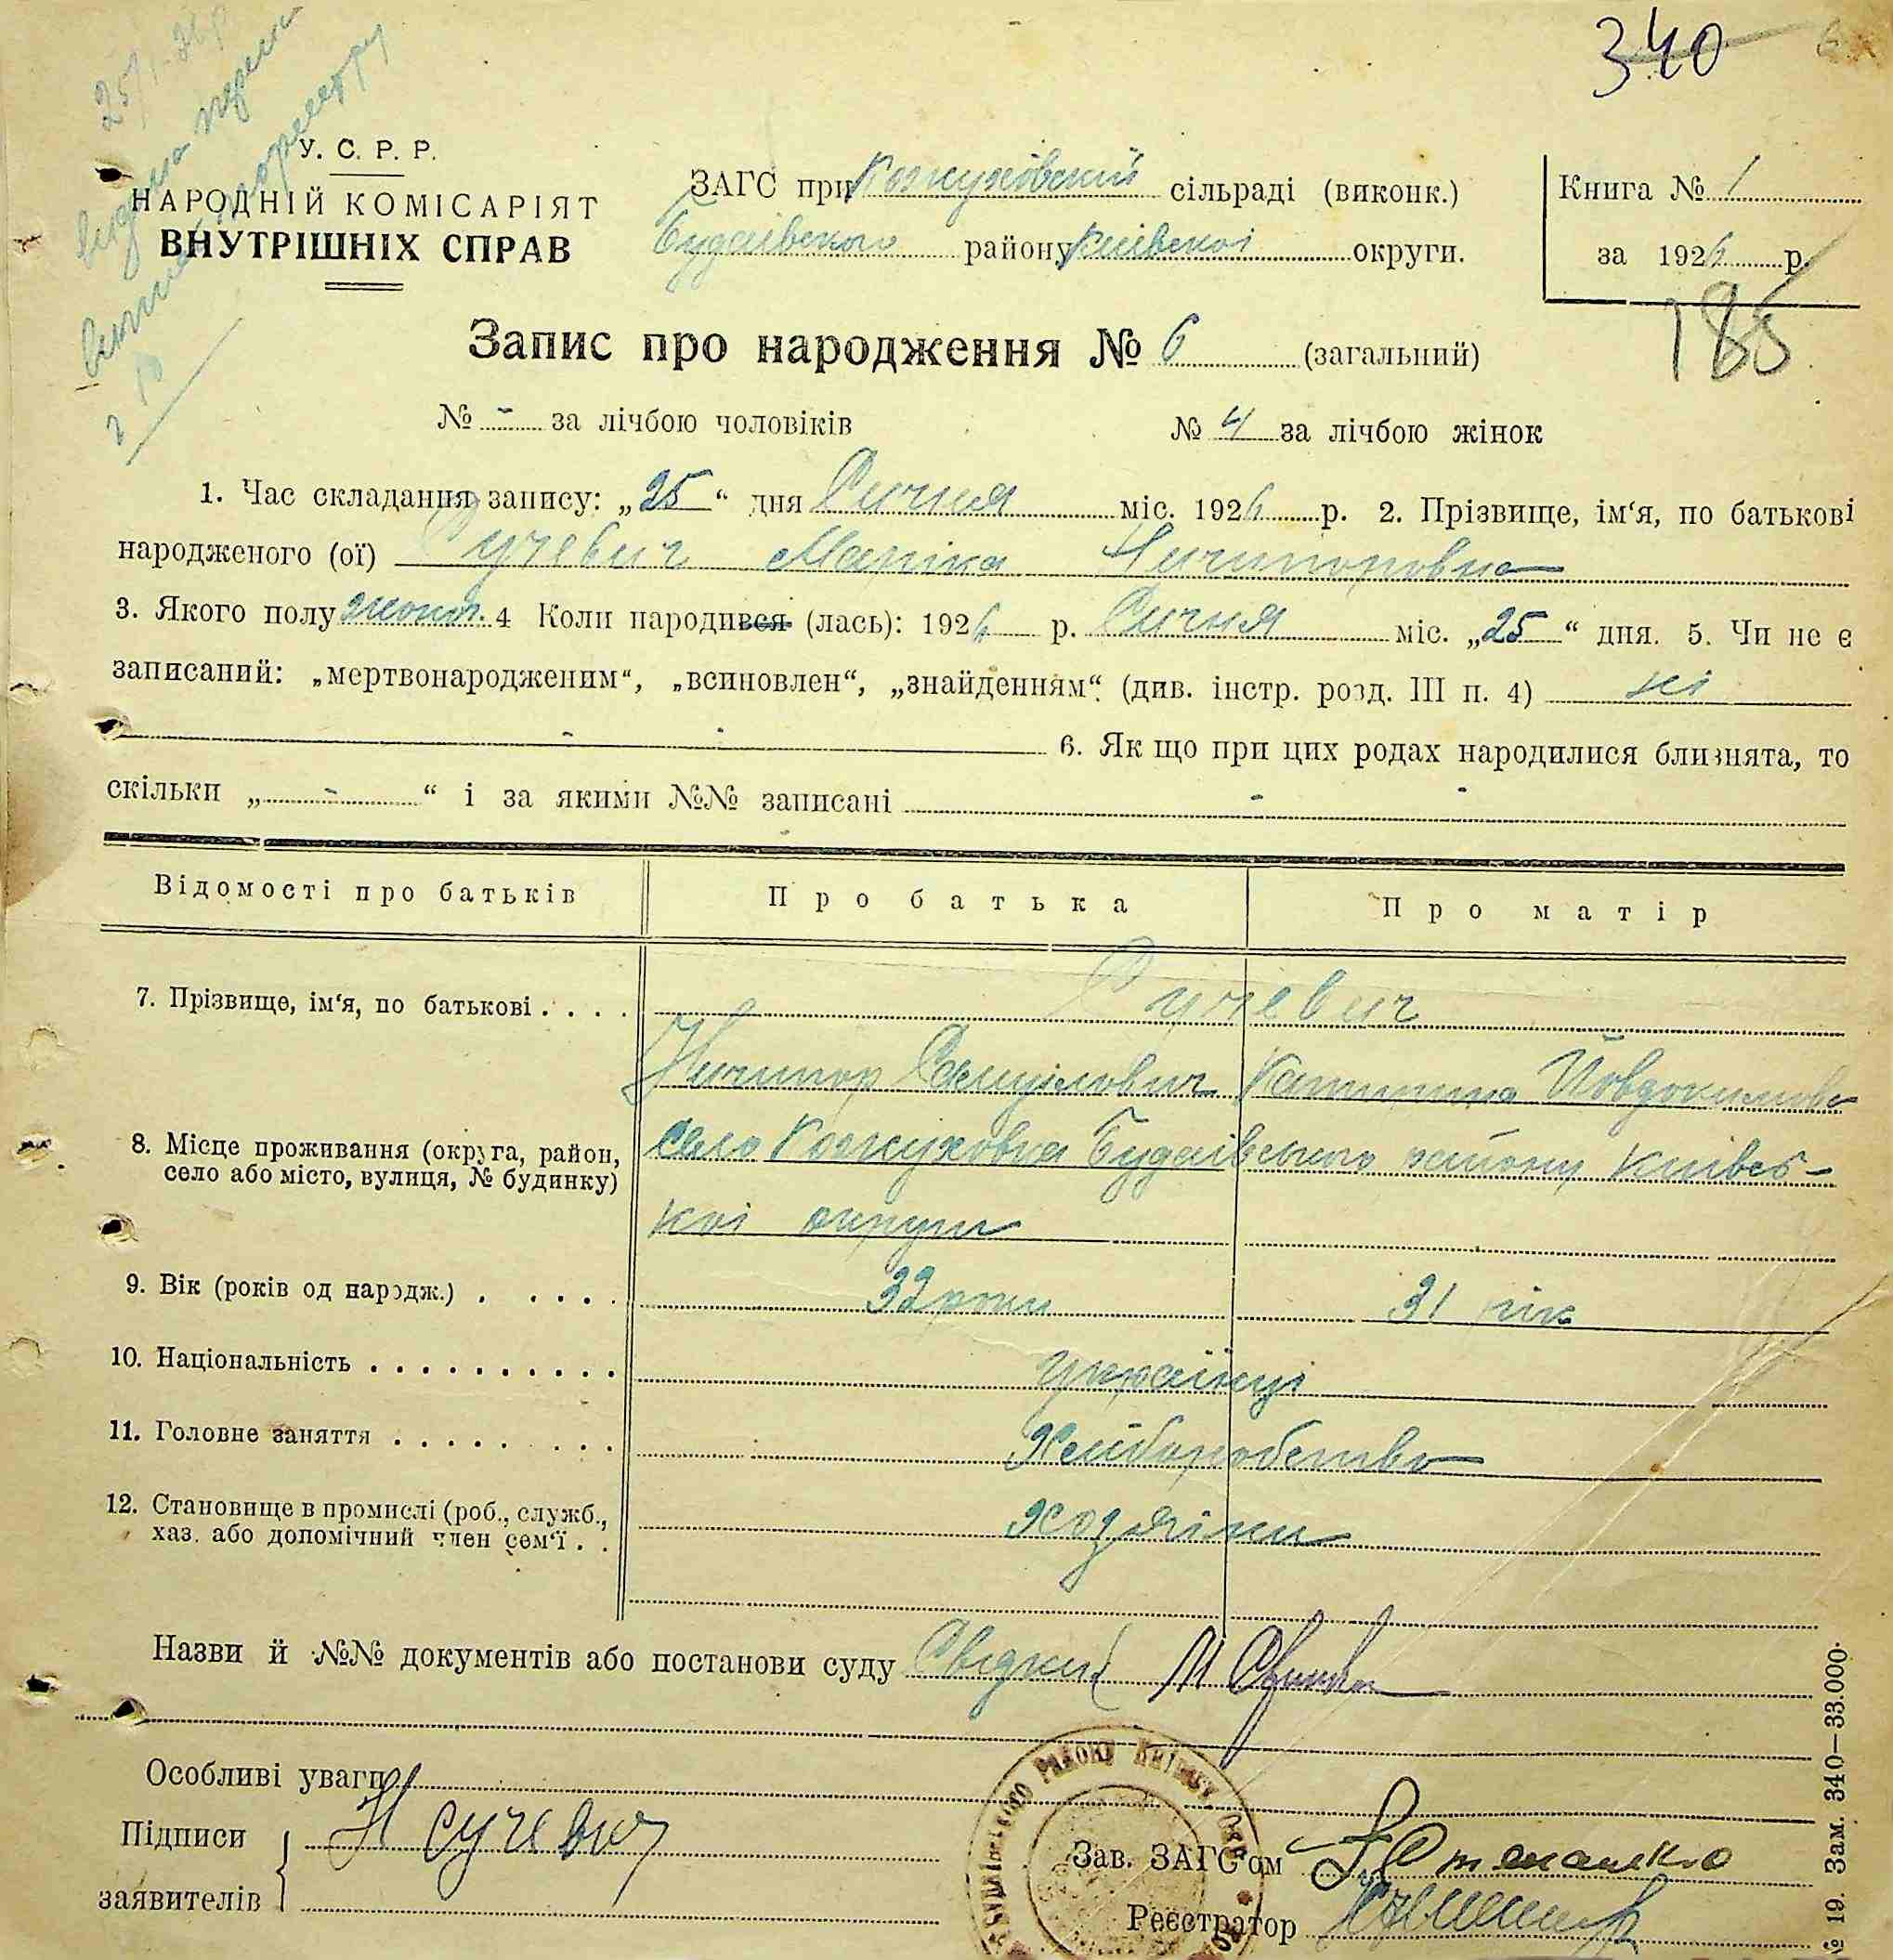 340
25/I-26р
У. С. Р. Р.
НАРОДНІЙ КОМІСАРІЯТ
ВНУТРІШНІХ СПРАВ
ЗАГС при Кожуховский сільраді (виконк.)
Будаівского району Київскоі округи.
Книга № 1
за 1926 р.
186
Запис про народження № 6 (загальний)
№ - за лічбою чоловіків № 4 за лічбою жінок
1. Час складання запису: „25“ дня Сичня міс. 1926 р. 2. Прізвище, ім‘я, по батькові
народженого (ої) Сучевич Маріка Ничипоровна
3. Якого полу жіноч. 4 Коли народився (лась): 1926 р. Сичня міс. „25“ дня. 5. Чи не є
записаний: „мертвонародженим“, „всиновлен“, „знайденням“ (див. інстр. розд. III п. 4) ні
- - 6. Як що при цих родах народилися близнята, то
скільки „ - “ і за якими №№ записані - -
Відомості про батьків Про батька Про матір
7. Прізвище, ім‘я, по батькові . . . . Сучевич
Ничипор Самуілович Катерина Йовдокимовна
8. Місце проживання (округа, район,
село або місто, вулиця, № будинку)
село Кожуховка Будаівського району Київсь-
коі округи
9. Вік (років од народж.) . . . . . 32 роки 31 рік
10. Національність . . . . . . . . . . українці
11. Головне заняття . . . . . . . . . Хліборобство
12. Становище в промислі (роб., служб.,
хаз. або допомічний член сем‘ї . .
хозяіни
Назви й №№ документів або постанови суду Свідки
Особливі уваги
Підписи
заявителів
Н Сучевич
Зав. ЗАГС‘ом Степаненко
Реєстратор
РАЙОНУ
№ 19. Зам. 340—33.000.